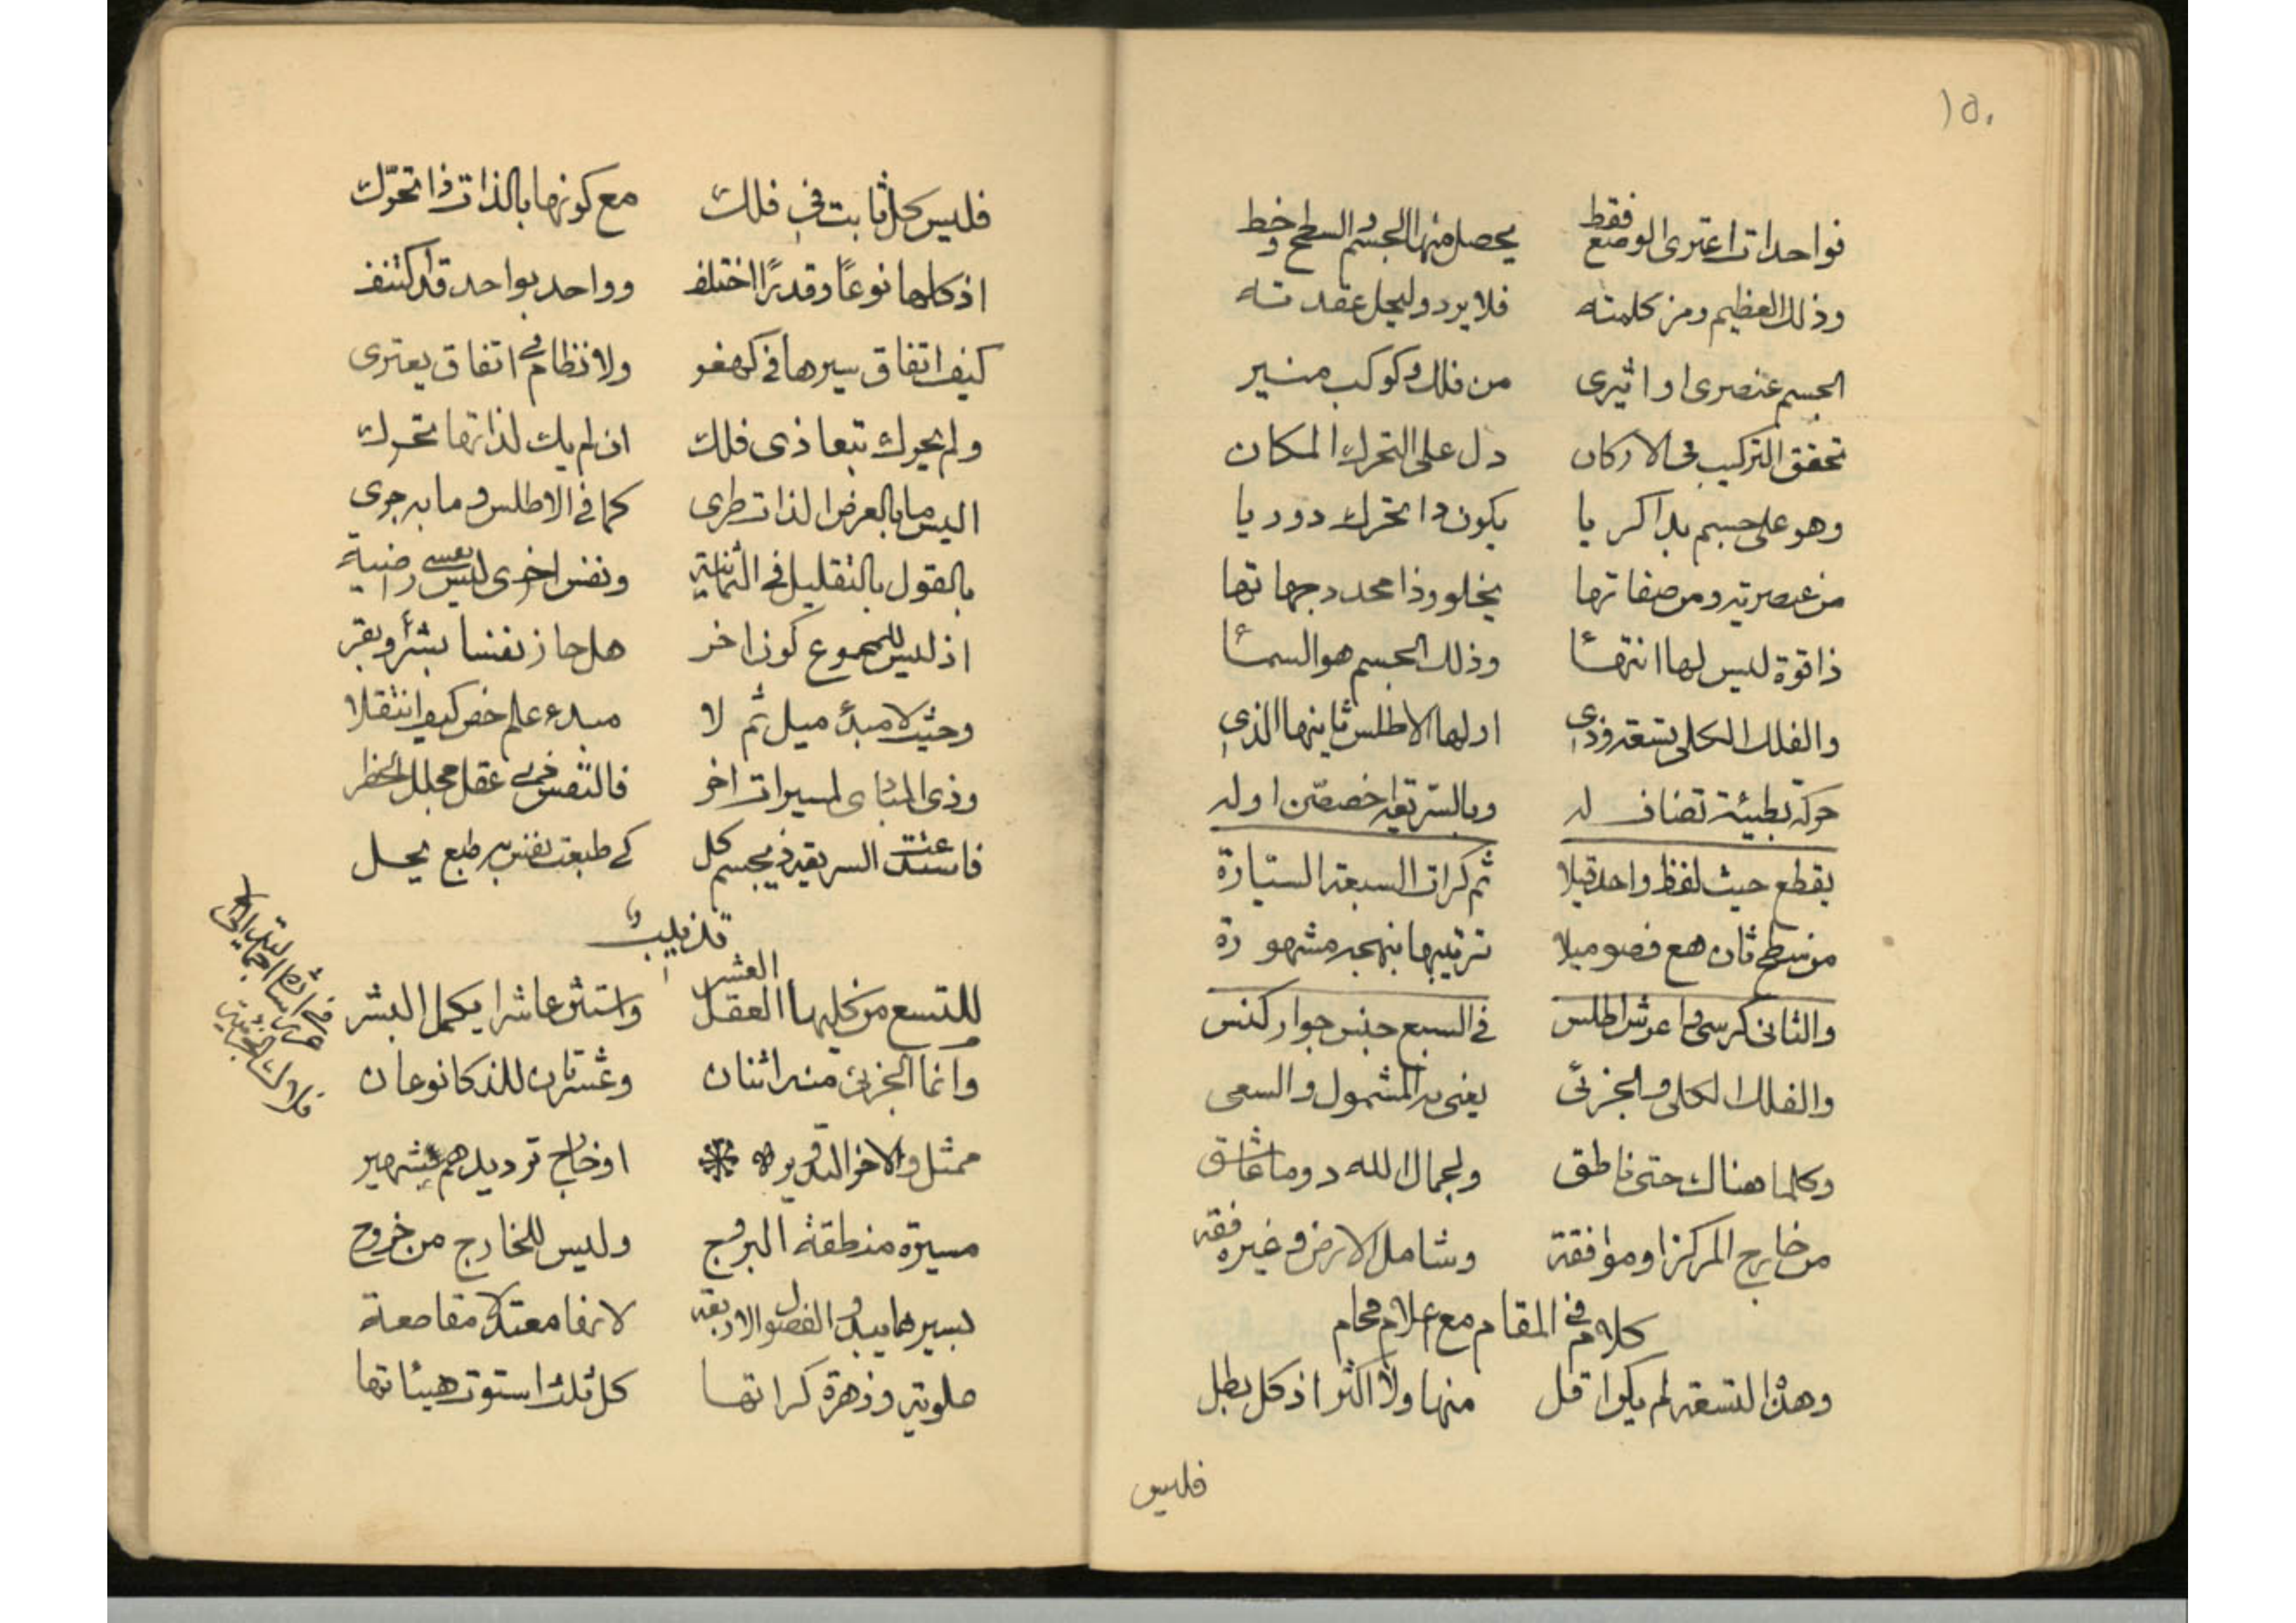 ١٥٠
فواحدات اعترى الوضع فقط يحصل منها الجسم والسطح وخط
وذلك العظيم رمز كلمته فلا يرد وليحل عقدته
الجسم عنصرى او اثيرى من فلك وكوكب منير
تحقق التركيب فى الاركان دل على التحرك المكان
وهو على جسم بدا كريا يكون ذا تحرك دوريا
من عنصريته ومن صفاتها يخلو وذا محدد جهاتها
ذا قوة ليس لها انتهاء وذلك الجسم هو السماء
والفلك الكلى تسعة وذى اولها الاطلس ثانيها الذى
حركة بطيئة تضاف له وبالسريعة اخصصن اوله
يقطع حيث لفظ واحد قيلا ثم كرات السبعة السيارة
من سطح ثان هع فصو ميلا ترتيبها بنهجه مشهورة
والثانى كرسى واعرش اطلس فى السبع جنس جوار كنس
والفلك الكلى والجزئى يعنى به المشمول والسعى
وكلما هناك حى ناطق ولجمال الله دوما عاشق
من خارج المركز او موافقة وشامل الارض وغير فقه
كلام فى المقام مع اعلام فخام
وهذه التسعة لم يكن اقل منها ولا اكثر اذ كل بطل
فليس
فليس كل ثابت فى فلك مع كونها بالذات ذا تحرك
اذ كلها نوعا وقدرا اختلف وواحد بواحد قد اكتنف
كيف اتفاق سيرها فى كهفو ولا نظام فى اتفاق يعترى
ولم يحرك تبعا ذى فلك ان لم يك لذاتها تحرك
اليس ما بالعرض الذات طرى كما فى الاطلس وما به جرى
بالقول بالتقليل فى الثمانية ونفس اخرى ليس نفسى راضية
اذ ليس للمجموع كون اخر هل حاز نفسا بشر وبقر
وحيث لا مبدأ ميل ثم لا مبدء علم خص كيف انتقلا
وذى المبادى لمسيرات اخر فالنفس فى عقل مجلل الخطر
فاسندت السريعة ذى بجسم كل كى طبعت نفس به طبع يحل
تذنيب
للتسع من كليها العقل العشر واستثن عاشرا يكمل البشر
وانما الجزئى منه اثنان وعشرتان للذكا نوعان
ممثل والاخر التدوير او خارج ترديدهم شهير
مسيرة منطقة البروج وليس للخارج من خروج
بسيرها يبدو الفصول الاربعة لانها معتدلا مقاصعة
علوية وزهرة كراتها كل ثلث استوت هيئاتها